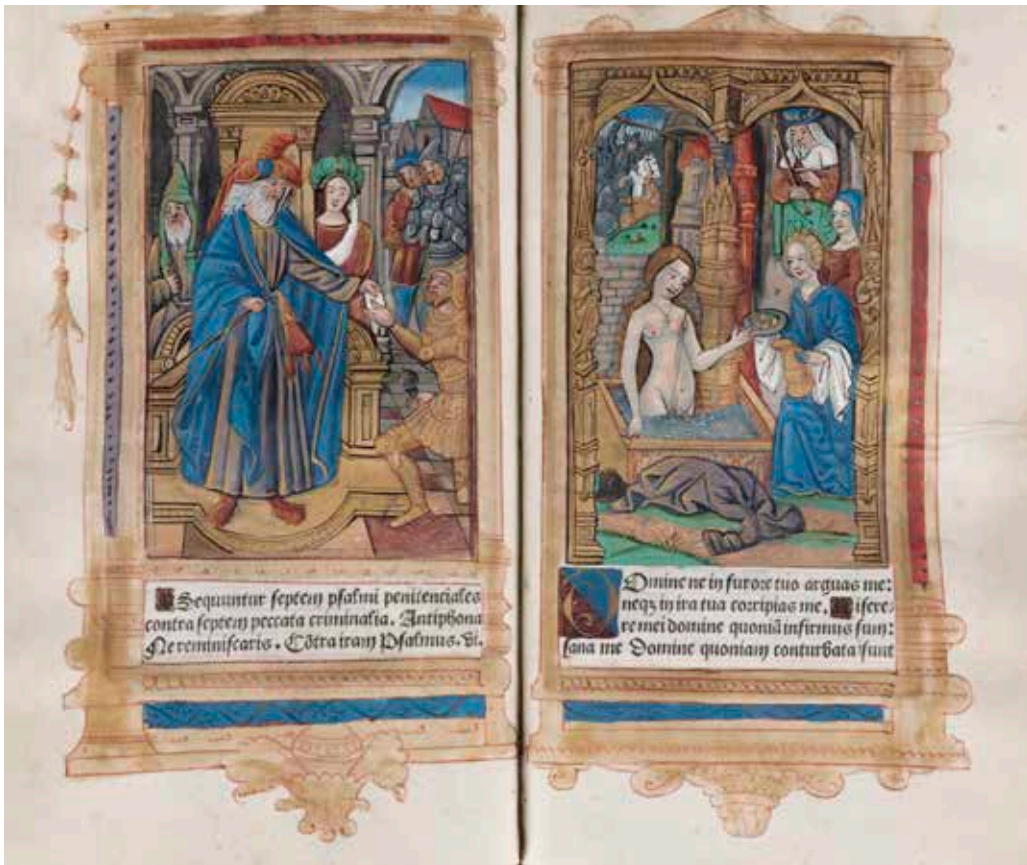 Sequuntur septem psalmi penitenciales
contra septem peccata criminalia. Antiphona
Ne reminiscaris. Cõtra iram Psalmus. vi.
Domine ne in furore tuo arguas me:
neqz in ira tua corripias me. Misere-
re mei domine quoniã infirmus sum:
sana me Domine quoniam conturbata sunt